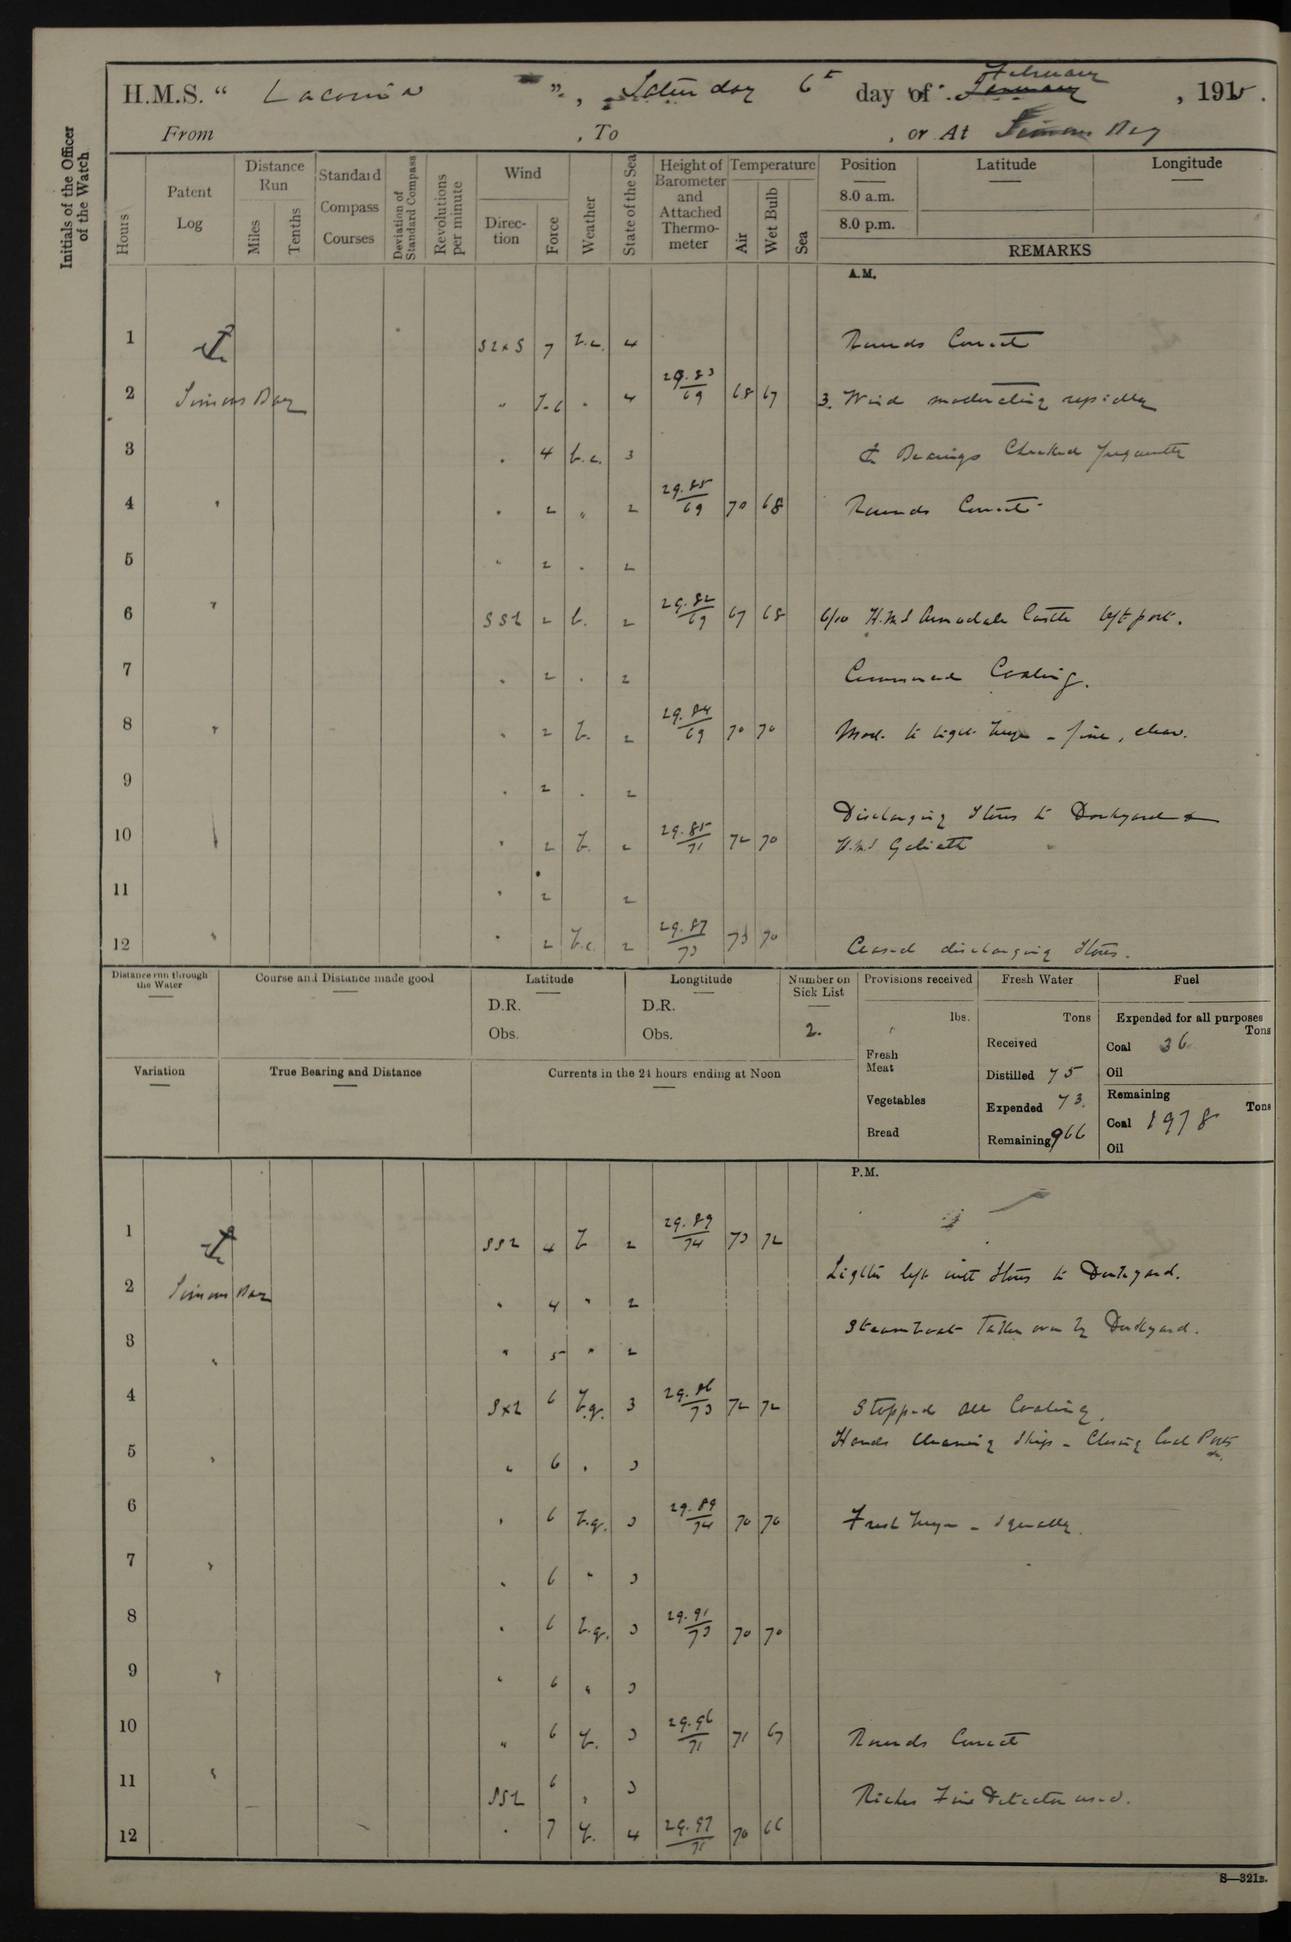 H.M.S. “ Laconia ”, Saturday 6th day of January February, 1915.
From , To , or At Simons Bay
Initials of the Officer of the Watch
Hours
Patent Log
Distance Run
Miles
Tenths
Standard Compass Courses
Deviation of Standard Compass
Revolutions per minute
Wind
Direction
Force
Weather
State of the Sea
Height of Barometer and Attached Thermometer
Temperature
Air
Wet Bulb
Sea
Position
8.0 a.m.
8.0 p.m.
Latitude
Longitude
REMARKS
A.M.
1 SExS 7 b.c. 4 Rounds Correct
2 Simons Bay " 7-6 " 4 29.83/69 68 67 3. Wind moderating rapidly
3 " 4 b.c. 3 Bearings Checked frequently
4 " " 2 " 2 29.85/69 70 68 Rounds Correct
5 " 2 " 2
6 " SSE 2 b. 2 29.82/69 67 68 6/10 H.M.S Armadale Castle left port.
7 " 2 " 2 Commenced Coaling.
8 " " 2 b. 2 29.84/69 70 70 Mod. to light breeze - fine, clear.
9 " 2 " 2
Discharging Stores to Dockyard &
10 " 2 b. 2 29.85/71 72 70 H.M.S Goliath
11 " 2 2
12 " " 2 b.c. 2 29.87/73 73 70 Ceased discharging Stores.
Distance run through the Water
Course and Distance made good
Latitude
D.R.
Obs.
Longtitude
D.R.
Obs.
Number on Sick List
2.
Provisions received
lbs.
Fresh Meat
Vegetables
Bread
Fresh Water
Tons
Received
Distilled 75
Expended 73.
Remaining 966
Fuel
Expended for all purposes
Tons
Coal 36
Oil
Remaining
Tons
Coal 1978
Oil
Variation
True Bearing and Distance
Currents in the 24 hours ending at Noon
P.M.
1 SSE 4 b 2 29.89/74 73 72
Lighter left with Stores to Dockyard.
2 Simons Bay " 4 " 2
Steamboat Taken over by Dockyard.
3 " " 5 " 2
4 SxE 6 b.q. 3 29.86/73 72 72 Stopped all Coaling.
Hands Cleaning Ship - Closing Coal Ports
5 " " 6 " 3
6 " 6 b.q. 3 29.89/74 70 70 Fresh breeze - Squally.
7 " " 6 " 3
8 " 6 b.q. 3 29.91/73 70 70
9 " " 6 " 3
10 " 6 b. 3 29.96/71 71 67 Rounds Correct
11 " SSE 6 " 3 Riches Fire Detector used.
12 " 7 b. 4 29.97/71 70 66
S—321B.